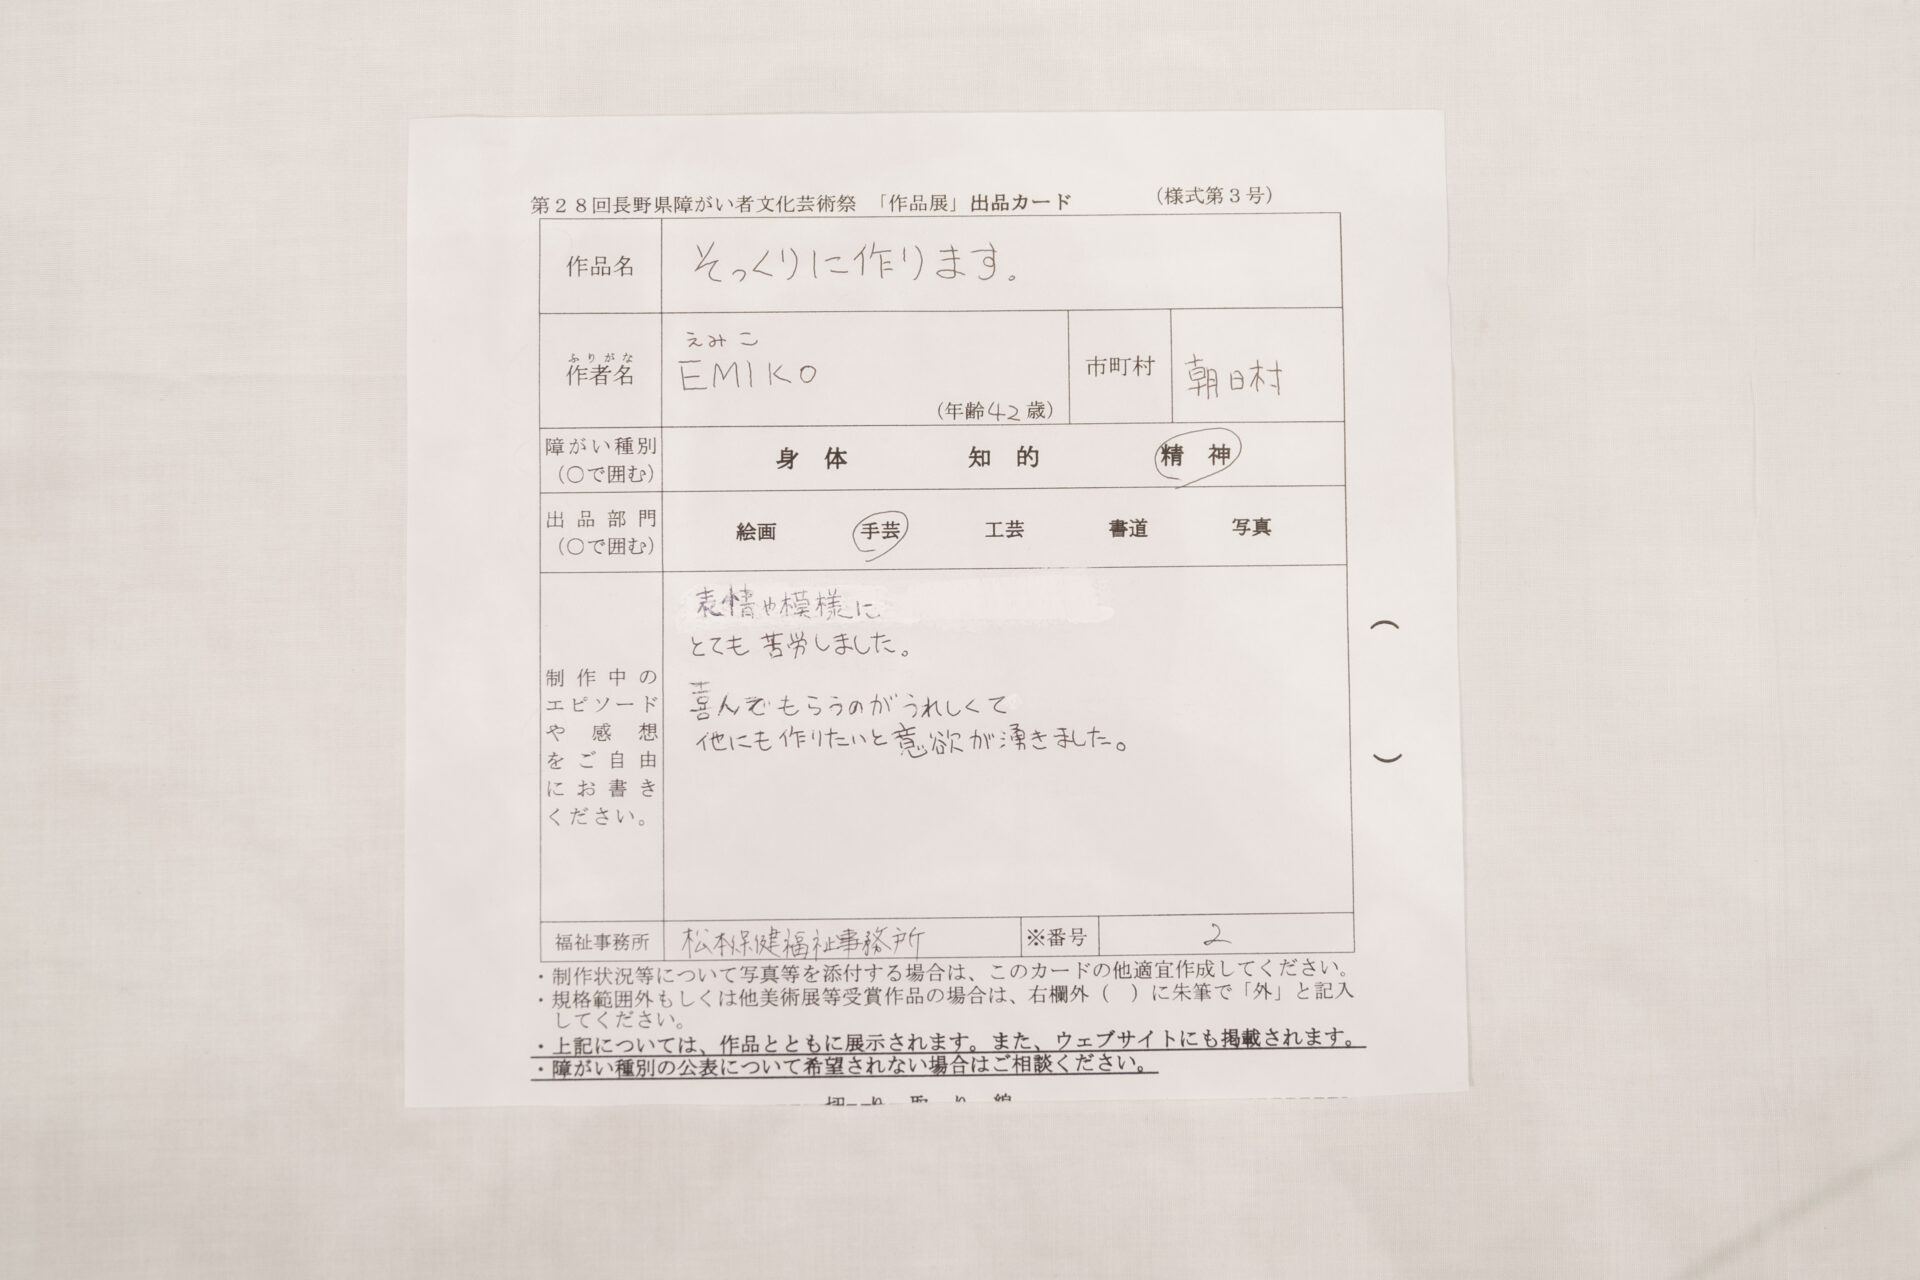 第２８回長野県障がい者文化芸術祭 「作品展」出品カード （様式第３号）
作品名 そっくりに作ります。
えみこ
ふりがな
作者名 EMIKO 市町村 朝日村
（年齢42歳）
障がい種別
（○で囲む） 身体 知的 精神
出品部門
（○で囲む） 絵画 手芸 工芸 書道 写真
表情や模様に
とても苦労しました。
喜んでもらうのがうれしくて
他にも作りたいと意欲が湧きました。
制作中の
エピソード
や感想
をご自由
にお書き
ください。
（ ）
福祉事務所 松本保健福祉事務所 ※番号 2
・制作状況等について写真等を添付する場合は、このカードの他適宜作成してください。
・規格範囲外もしくは他美術展等受賞作品の場合は、右欄外（ ）に朱筆で「外」と記入
してください。
・上記については、作品とともに展示されます。また、ウェブサイトにも掲載されます。
・障がい種別の公表について希望されない場合はご相談ください。
切り取り線